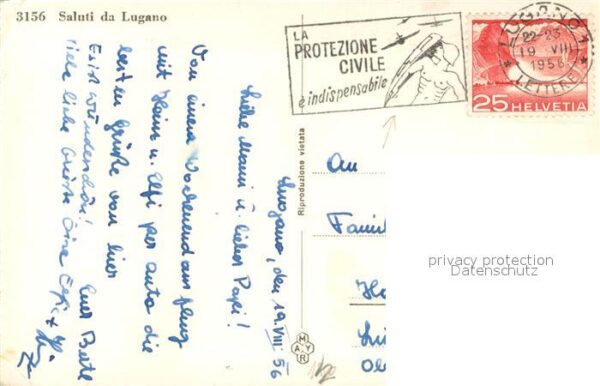 3156 Saluti da Lugano
LA
PROTEZIONE
CIVILE
è indispensabile
LUGANO 1
22-23
19 VIII
1956
LETTERE
25 HELVETIA
Lugano, den 19.VIII.56
Liebe Mami u. lieber Papi!
Von einem Wochenendausflug
mit Heinz u. Elfi per Auto die
besten Grüße von hier
Es ist wunderschön! Eure Beate
viele liebe Grüße
Riproduzione vietata
MAYR
An
Famil
privacy protection
Datenschutz